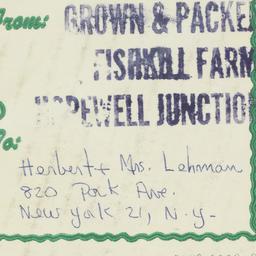 From: GROWN & PACKE
FISHKILL FARM
HOPEWELL JUNCTIO
To:
Herbert + Mrs. Lehman
820 Park Ave.
New York 21, N.Y.